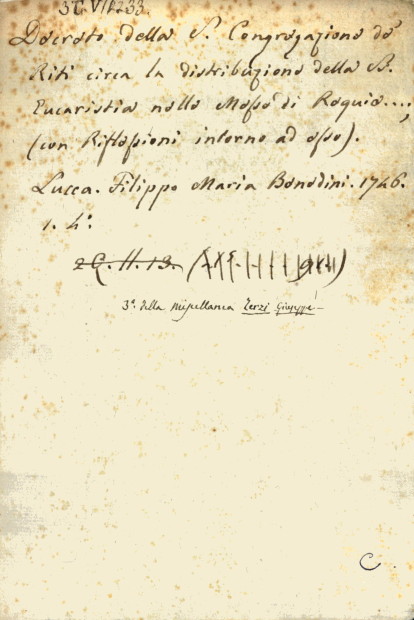 Decreto della S. Congregazione de'
Riti circa la distribuzione della S.
Eucaristia nelle Messe di Requie...,
(con Riflessioni intorno ad esso).
Lucca. Filippo Maria Benedini. 1746.
1. 4°.
2 C. H. 13.
3ª. della Miscellanea Terzi Giuseppe
C.